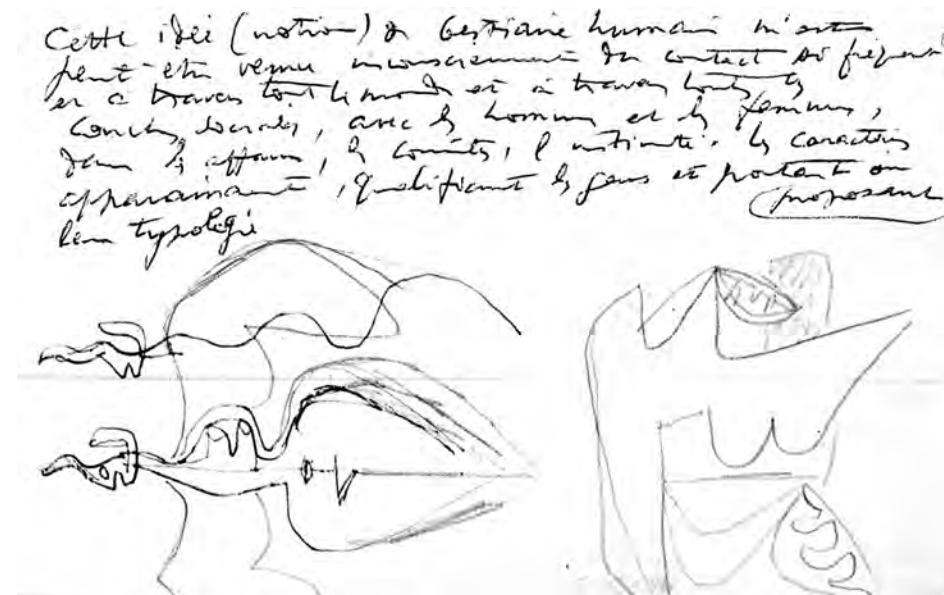 Cette idée (notion) de bestiaire humain m'est
peut être venue inconsciemment du contact si fréquent
et à travers tout le monde et à travers toutes les
couches sociales, avec les hommes et les femmes,
dans les affaires, les comités, l'intimité. Les caractères
apparaissent, qualifiant les gens et portant ou
proposant
leur typologie